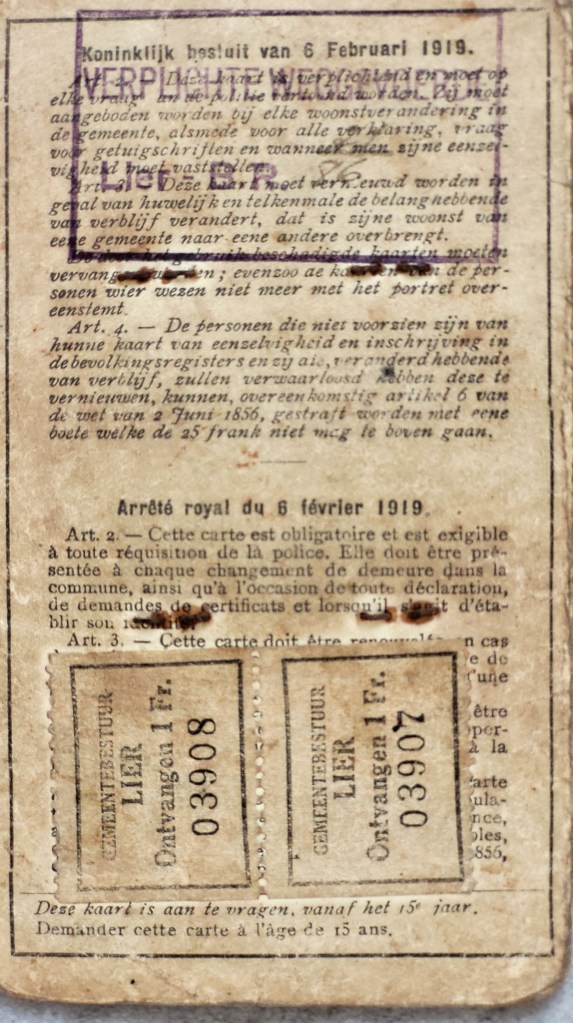 Koninklijk besluit van 6 Februari 1919.
VERPLICHTE
Art. 2. — Deze kaart is verplichtend en moet op
elke vraag van de politie vertoond worden. Zij moet
aangeboden worden bij elke woonstverandering in
de gemeente, alsmede voor alle verklaring, vraag
voor getuigschriften en wanneer men zijne eenzel-
vigheid moet vaststellen.
Lier - B.P.
Art. 3. — Deze kaart moet vernieuwd worden in
geval van huwelijk en telkenmale de belanghebbende
van verblijf verandert, dat is zijne woonst van
eene gemeente naar eene andere overbrengt.
De door het gebruik beschadigde kaarten moeten
vervangen worden ; evenzoo de kaarten van de per-
sonen wier wezen niet meer met het portret over-
eenstemt.
Art. 4. — De personen die niet voorzien zijn van
hunne kaart van eenzelvigheid en inschrijving in
de bevolkingsregisters en zij die, veranderd hebbende
van verblijf, zullen verwaarloosd hebben deze te
vernieuwen, kunnen, overeenkomstig artikel 6 van
de wet van 2 Juni 1856, gestraft worden met eene
boete welke de 25 frank niet mag te boven gaan.
Arrêté royal du 6 février 1919.
Art. 2. — Cette carte est obligatoire et est exigible
à toute réquisition de la police. Elle doit être pré-
sentée à chaque changement de demeure dans la
commune, ainsi qu'à l'occasion de toute déclaration,
de demandes de certificats et lorsqu'il s'agit d'éta-
blir son identité.
Art. 3. — Cette carte doit être renouvelée en cas
de
d'une
être
per-
à la
carte
ula-
nce,
bles,
1856,
GEMEENTEBESTUUR
LIER
Ontvangen 1 Fr.
03908
GEMEENTEBESTUUR
LIER
Ontvangen 1 Fr.
03907
Deze kaart is aan te vragen, vanaf het 15e jaar.
Demander cette carte à l'âge de 15 ans.